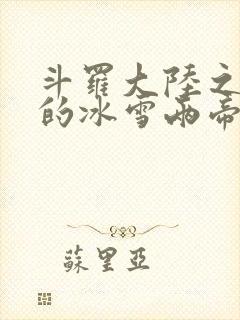 斗羅大陸之
的冰雪兩帝
蘇里亞